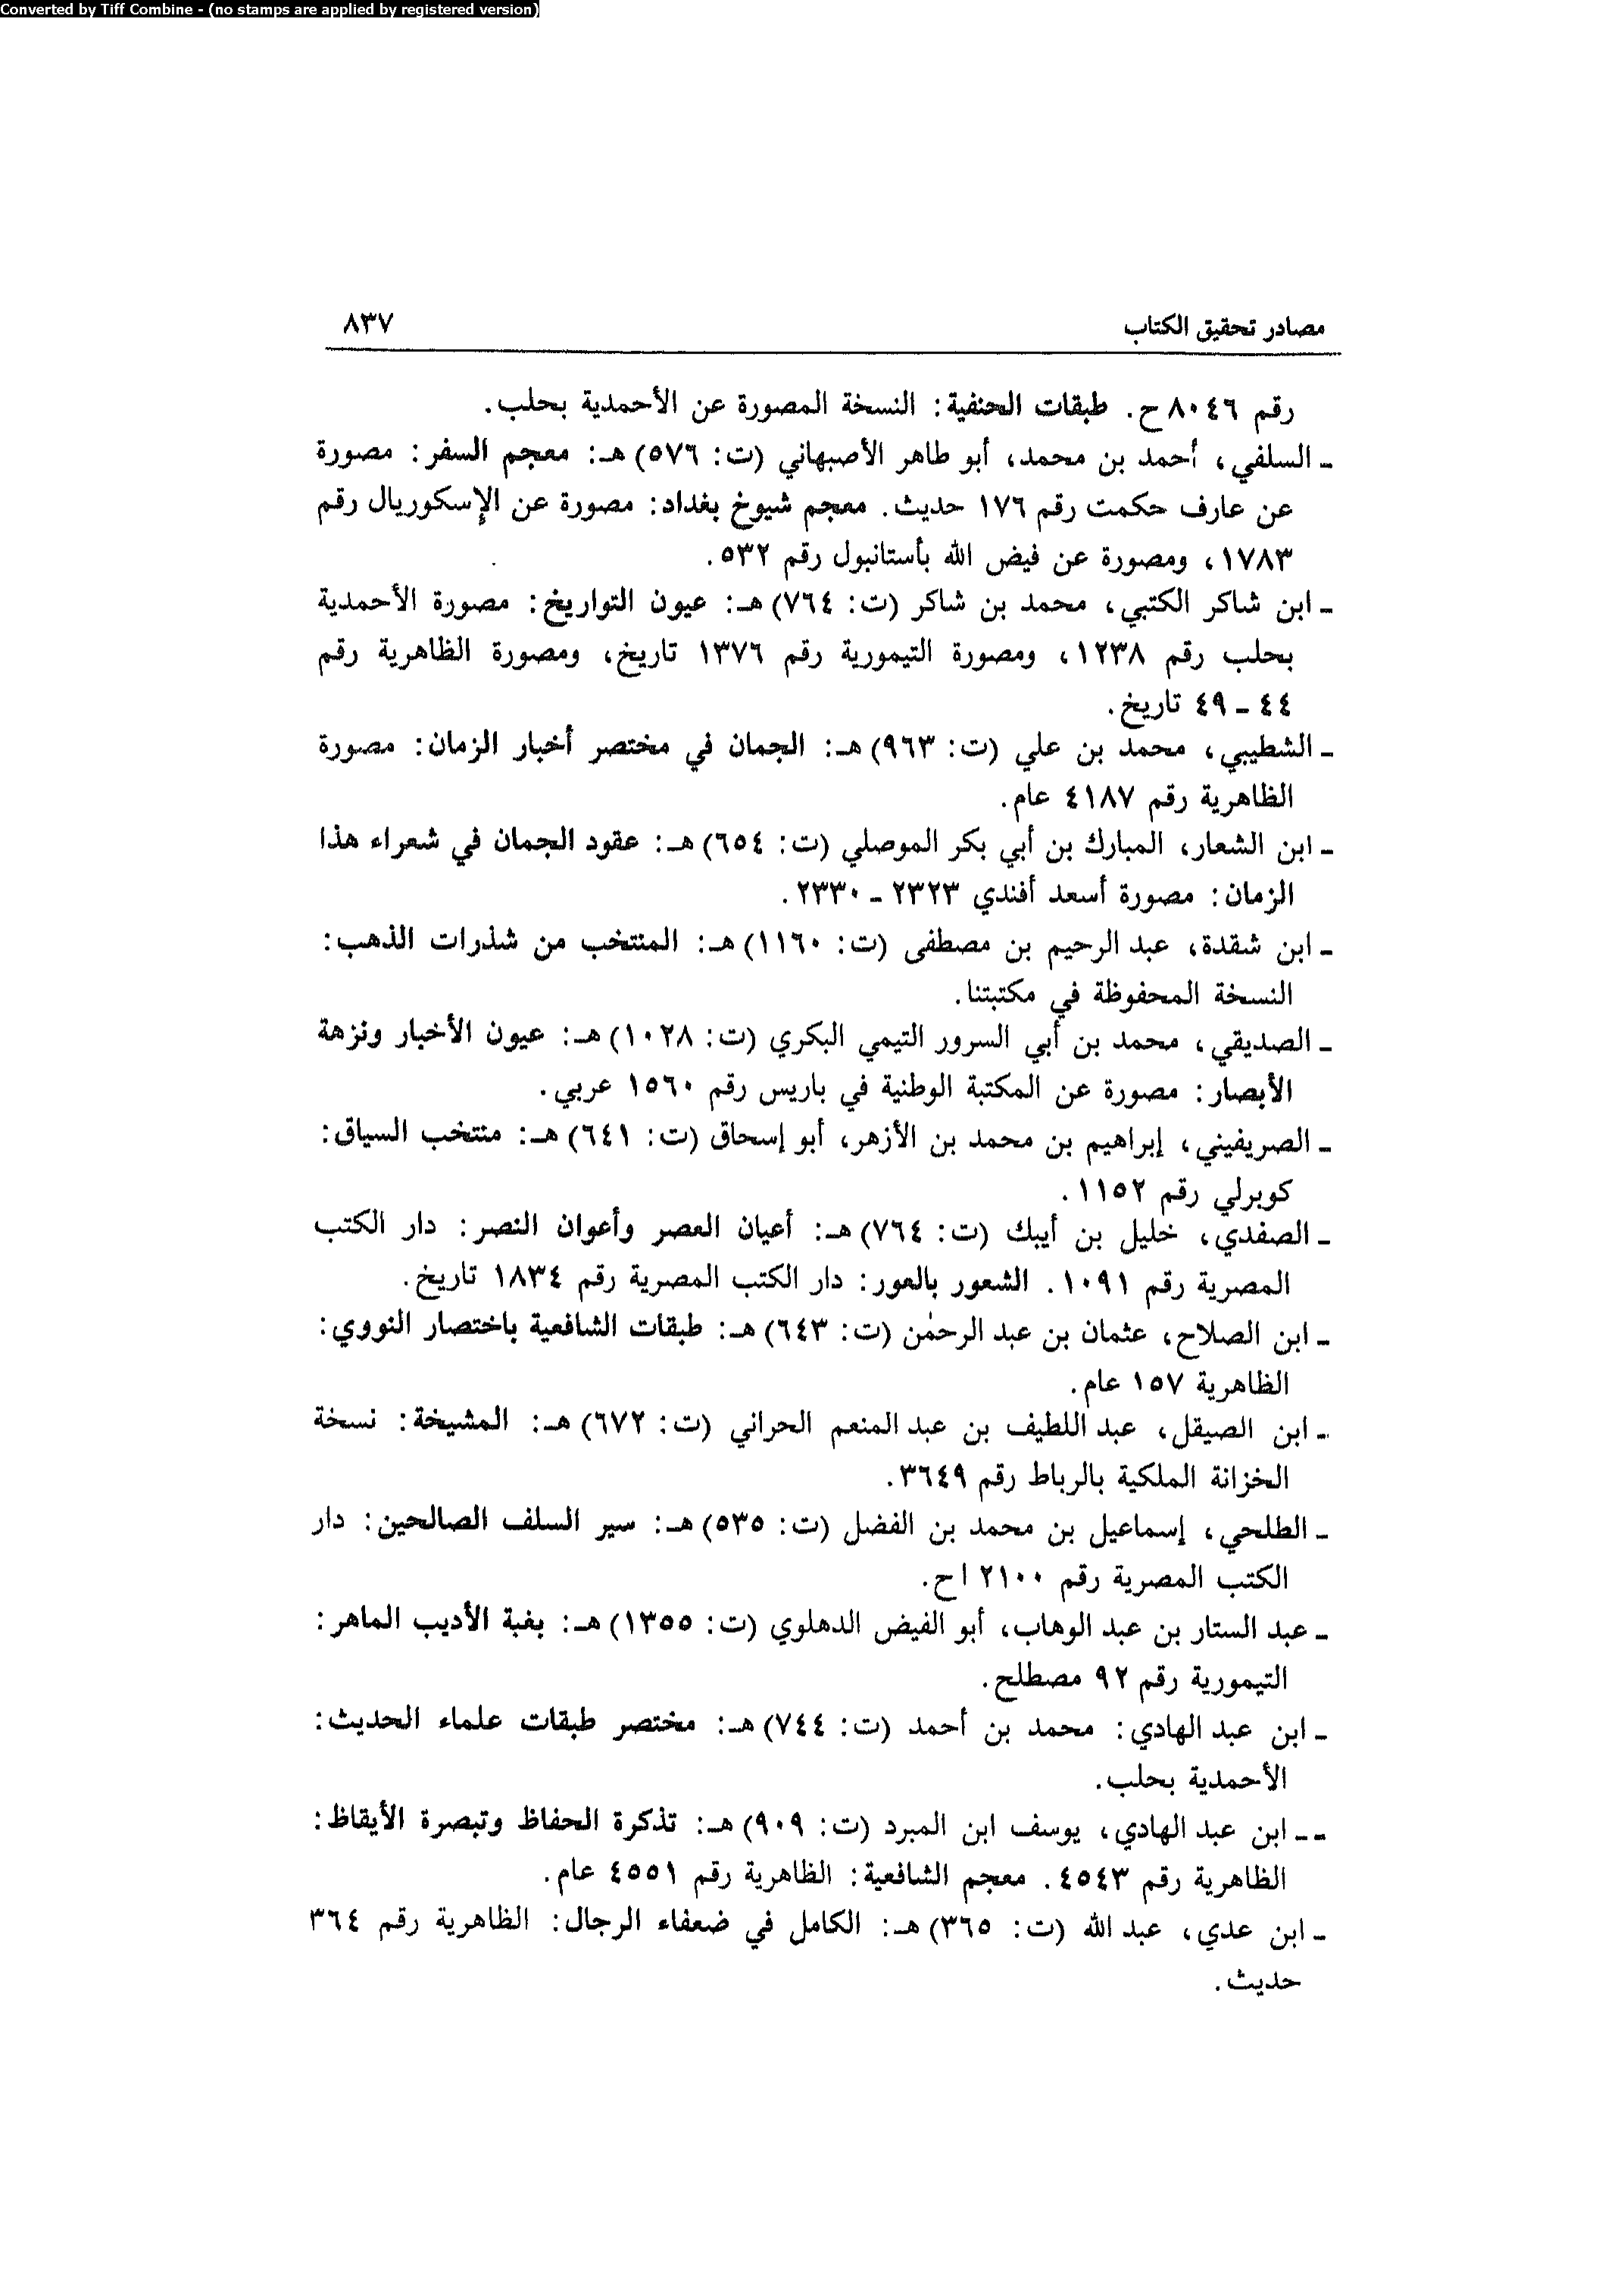 Converted by Tiff Combine - (no stamps are applied by registered version)
مصادر تحقيق الكتاب ٨٣٧
رقم ٨٠٤٦ ح. طبقات الحنفية: النسخة المصورة عن الأحمدية بحلب.
ـ السلفي، أحمد بن محمد، أبو طاهر الأصبهاني (ت: ٥٧٦) هـ: معجم السفر: مصورة
عن عارف حكمت رقم ١٧٦ حديث. معجم شيوخ بغداد: مصورة عن الإسكوريال رقم
١٧٨٣، ومصورة عن فيض الله بأستانبول رقم ٥٣٢.
ـ ابن شاكر الكتبي، محمد بن شاكر (ت: ٧٦٤) هـ: عيون التواريخ: مصورة الأحمدية
بحلب رقم ١٢٣٨، ومصورة التيمورية رقم ١٣٧٦ تاريخ، ومصورة الظاهرية رقم
٤٤ ـ ٤٩ تاريخ.
ـ الشطيبي، محمد بن علي (ت: ٩٦٣) هـ: الجمان في مختصر أخبار الزمان: مصورة
الظاهرية رقم ٤١٨٧ عام.
ـ ابن الشعار، المبارك بن أبي بكر الموصلي (ت: ٦٥٤) هـ: عقود الجمان في شعراء هذا
الزمان: مصورة أسعد أفندي ٢٣٢٣ ـ ٢٣٣٠.
ـ ابن شقدة، عبد الرحيم بن مصطفى (ت: ١١٦٠) هـ: المنتخب من شذرات الذهب:
النسخة المحفوظة في مكتبتنا.
ـ الصديقي، محمد بن أبي السرور التيمي البكري (ت: ١٠٢٨) هـ: عيون الأخبار ونزهة
الأبصار: مصورة عن المكتبة الوطنية في باريس رقم ١٥٦٠ عربي.
ـ الصريفيني، إبراهيم بن محمد بن الأزهر، أبو إسحاق (ت: ٦٤١) هـ: منتخب السياق:
كوبرلي رقم ١١٥٢.
ـ الصفدي، خليل بن أيبك (ت: ٧٦٤) هـ: أعيان العصر وأعوان النصر: دار الكتب
المصرية رقم ١٠٩١. الشعور بالعور: دار الكتب المصرية رقم ١٨٣٤ تاريخ.
ـ ابن الصلاح، عثمان بن عبد الرحمٰن (ت: ٦٤٣) هـ: طبقات الشافعية باختصار النووي:
الظاهرية ١٥٧ عام.
ـ ابن الصيقل، عبد اللطيف بن عبد المنعم الحراني (ت: ٦٧٢) هـ: المشيخة: نسخة
الخزانة الملكية بالرباط رقم ٣٦٤٩.
ـ الطلحي، إسماعيل بن محمد بن الفضل (ت: ٥٣٥) هـ: سير السلف الصالحين: دار
الكتب المصرية رقم ٢١٠٠ اح.
ـ عبد الستار بن عبد الوهاب، أبو الفيض الدهلوي (ت: ١٣٥٥) هـ: بغية الأديب الماهر:
التيمورية رقم ٩٢ مصطلح.
ـ ابن عبد الهادي: محمد بن أحمد (ت: ٧٤٤) هـ: مختصر طبقات علماء الحديث:
الأحمدية بحلب.
ـ ـ ابن عبد الهادي، يوسف ابن المبرد (ت: ٩٠٩) هـ: تذكرة الحفاظ وتبصرة الأيقاظ:
الظاهرية رقم ٤٥٤٣. معجم الشافعية: الظاهرية رقم ٤٥٥١ عام.
ـ ابن عدي، عبد الله (ت: ٣٦٥) هـ: الكامل في ضعفاء الرجال: الظاهرية رقم ٣٦٤
حديث.